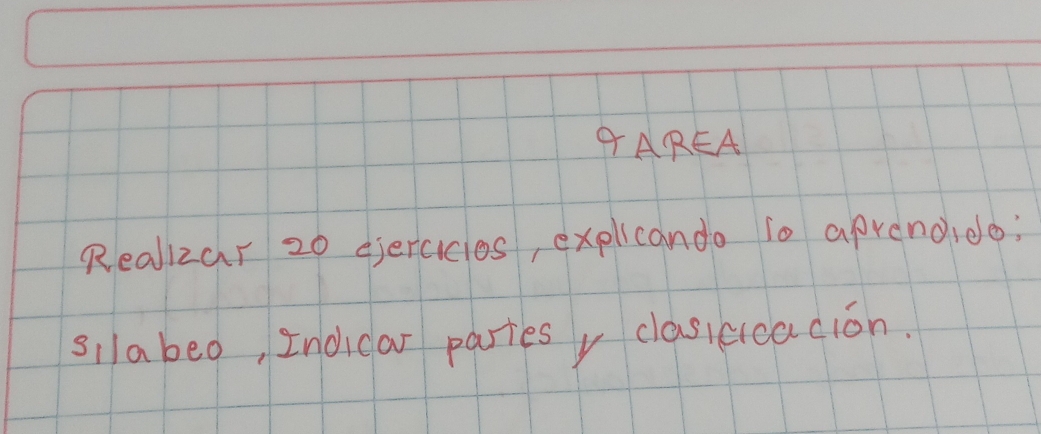 TAREA
Realizar 20 ejercicios, explicando lo aprendido:
silabeo, Indicar partes y clasificación.